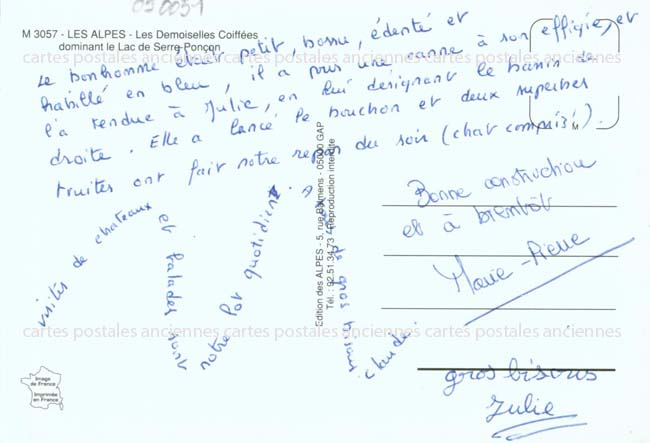 050051
M 3057 - LES ALPES - Les Demoiselles Coiffées
dominant le Lac de Serre-Ponçon
cartes postales anciennes cartes postales anciennes
Le bonhomme était petit, bossu, édenté et
habillé en bleu, il a pris une canne à son effigie, et
l'a tendue à Julie, en lui désignant le bassin de
droite. Elle a lancé le bouchon et deux superbes
truites ont fait notre repas du soir (chat compris!).
visites de chateaux et balades sont
notre lot quotidien.
sous
Edition des ALPES - 5, rue - 05000 GAP
Tél. : 92.51.34.73 - Reproduction interdite
M
Bonne construction
et à bientôt
Marie-Pierre
cartes postales anciennes cartes postales anciennes
gros bisous
Julie
Image
de France
Imprimée
en France